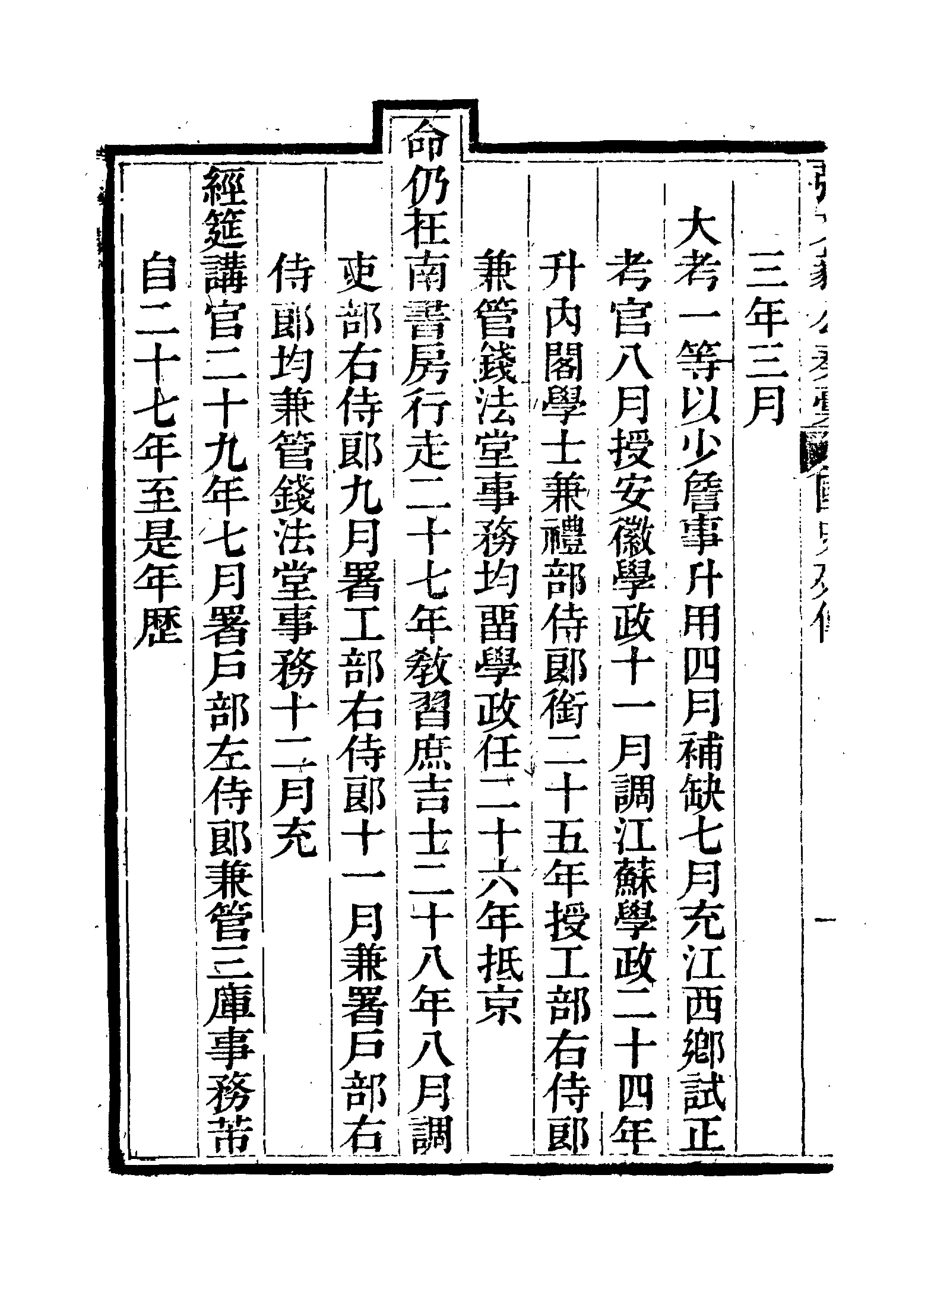 三年三月
大考一等以少詹事升用四月補缺七月充江西鄉試正
考官八月授安徽學政十一月調江蘇學政二十四年
升內閣學士兼禮部侍郎銜二十五年授工部右侍郎
兼管錢法堂事務均畱學政任二十六年抵京
命仍在南書房行走二十七年教習庶吉士二十八年八月調
吏部右侍郎九月署工部右侍郎十一月兼署戶部右
侍郎均兼管錢法堂事務十二月充
經筵講官二十九年七月署戶部左侍郎兼管三庫事務芾
自二十七年至是年歷